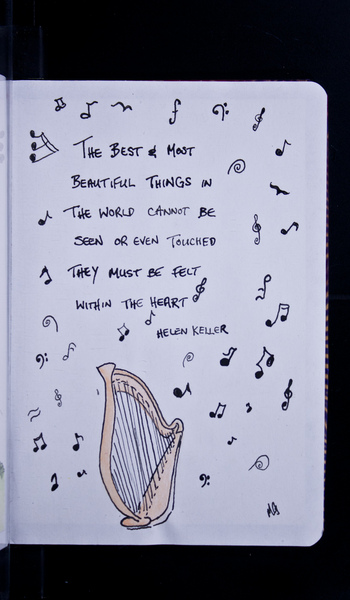 THE BEST & MOST
BEAUTIFUL THINGS IN
THE WORLD CANNOT BE
SEEN OR EVEN TOUCHED
THEY MUST BE FELT
WITHIN THE HEART
HELEN KELLER